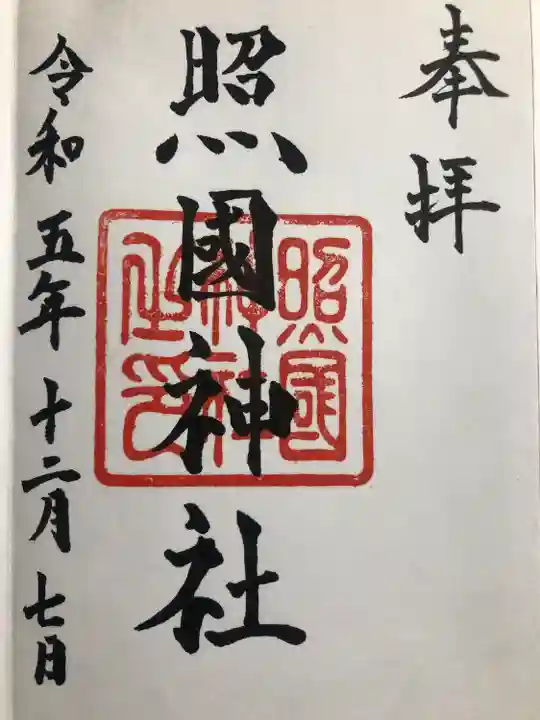 奉拝
照國神社
照國神社之印
令和五年十二月七日